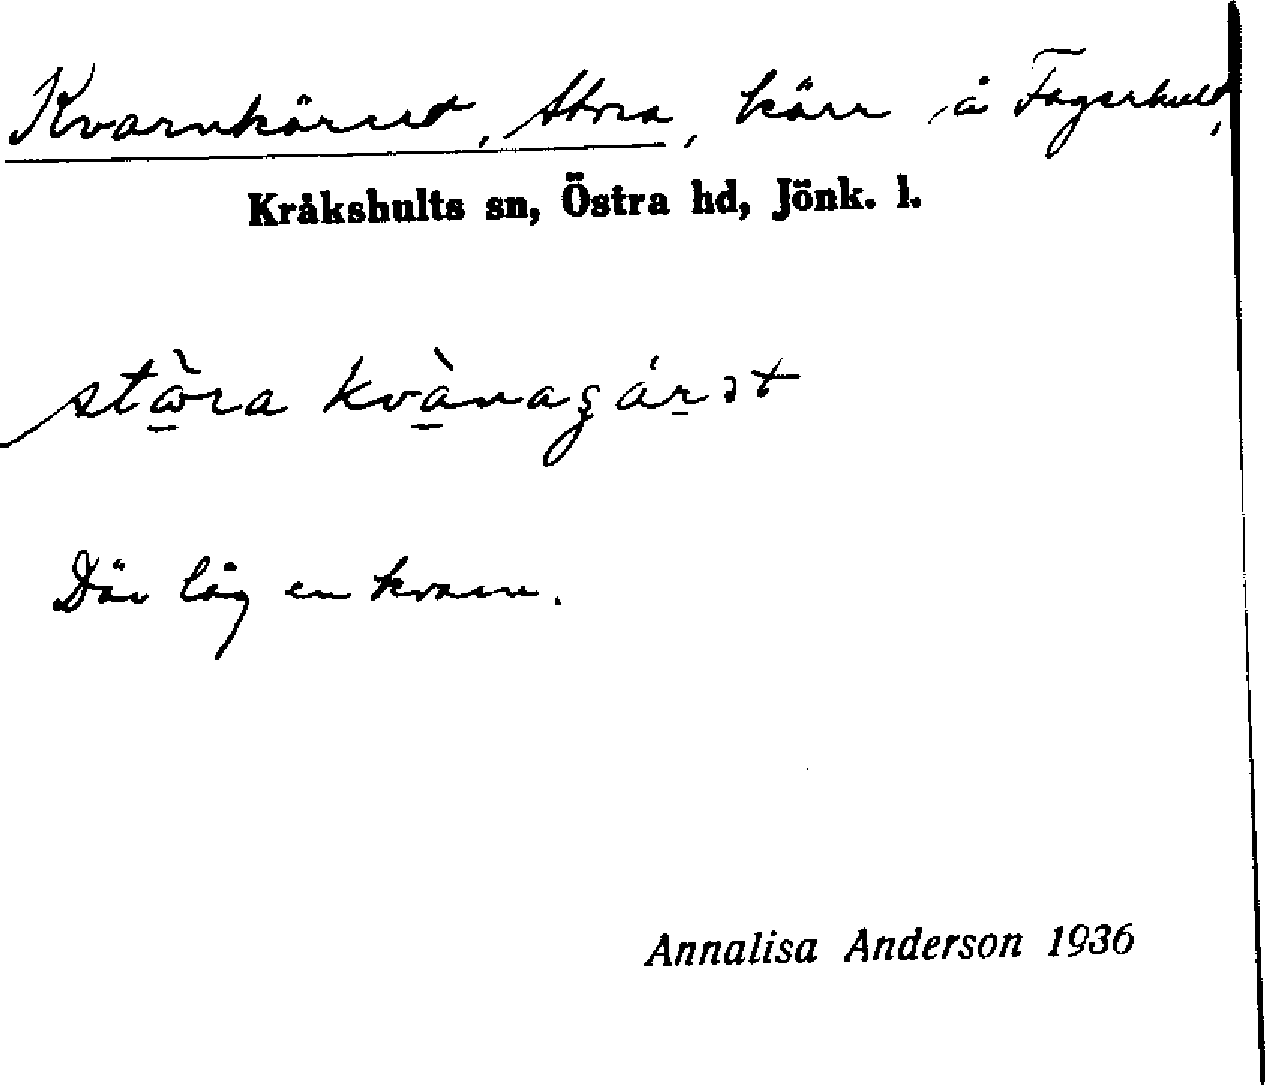 Kvarnkärret, Stora, kärr å Fagerhult,
Kråkshults sn, Östra hd, Jönk. l.
Där låg en kvarn.
Annalisa Anderson 1936